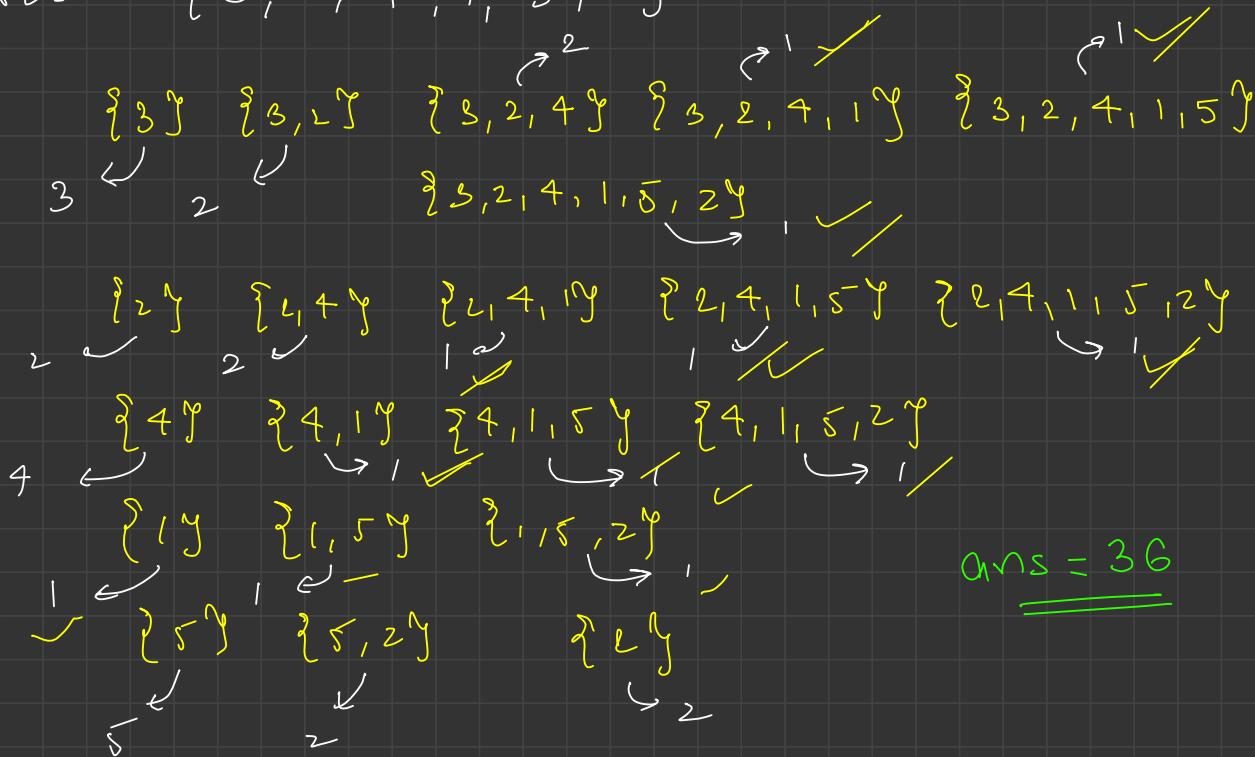 2
1
1
{3} {3,2} {3,2,4} {3,2,4,1} {3,2,4,1,5}
3 2 {3,2,4,1,5,2} 1
{2} {2,4} {2,4,1} {2,4,1,5} {2,4,1,5,2}
2 2 1 1 1
{4} {4,1} {4,1,5} {4,1,5,2}
4 1 1 1
{1} {1,5} {1,5,2}
ans = 36
1 1 1
{5} {5,2} {2}
5 2 2